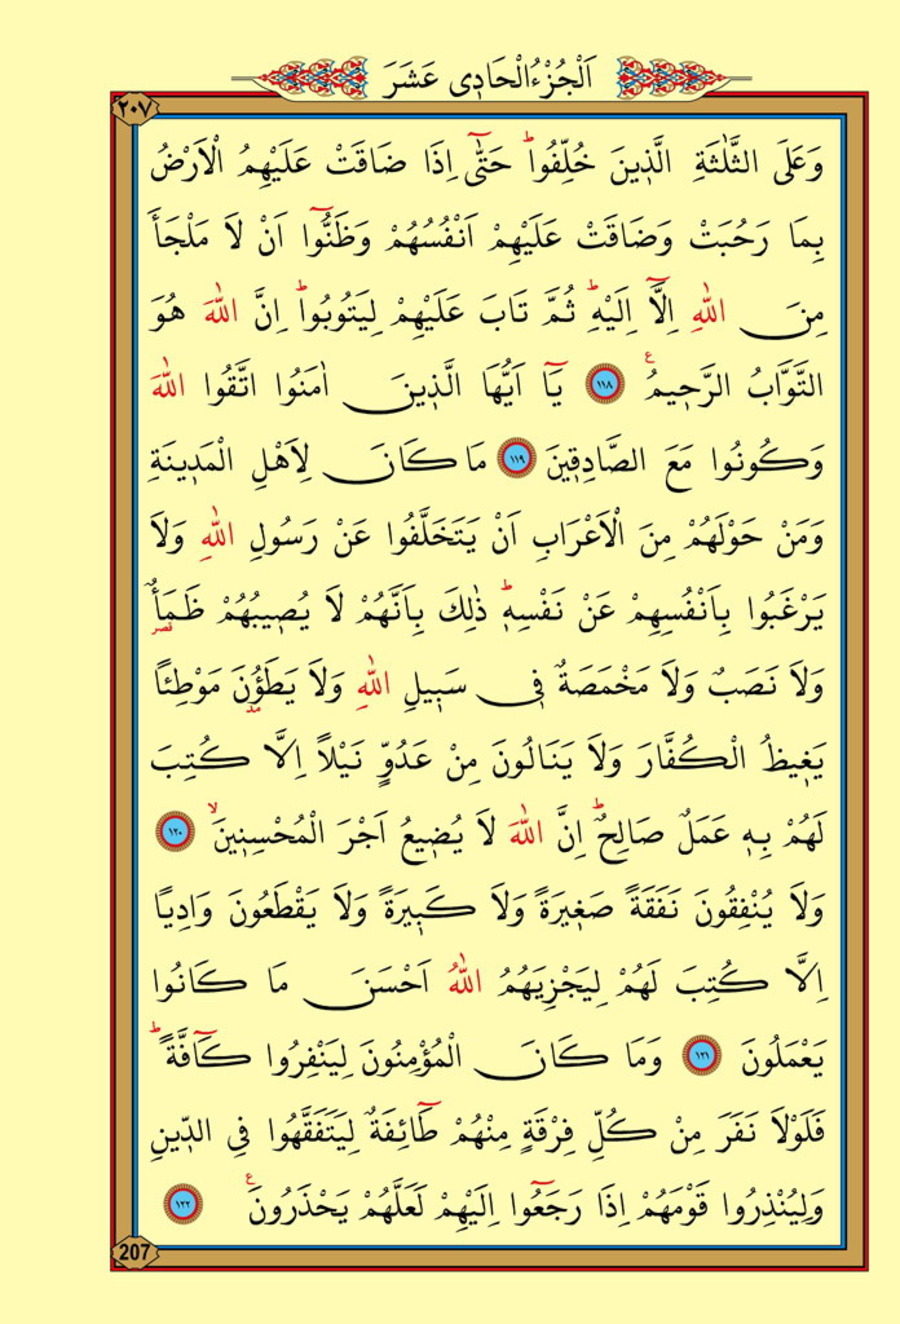 اَلْجُزْءُ الْحَادِى عَشَرَ
٢٠٧
وَعَلَى الثَّلٰثَةِ الَّذ۪ينَ خُلِّفُواۜ حَتّٰٓى اِذَا ضَاقَتْ عَلَيْهِمُ الْاَرْضُ
بِمَا رَحُبَتْ وَضَاقَتْ عَلَيْهِمْ اَنْفُسُهُمْ وَظَنُّٓوا اَنْ لَا مَلْجَأَ
مِنَ اللّٰهِ اِلَّٓا اِلَيْهِۜ ثُمَّ تَابَ عَلَيْهِمْ لِيَتُوبُواۜ اِنَّ اللّٰهَ هُوَ
التَّوَّابُ الرَّح۪يمُ۟ ﴿١١٨﴾ يَٓا اَيُّهَا الَّذ۪ينَ اٰمَنُوا اتَّقُوا اللّٰهَ
وَكُونُوا مَعَ الصَّادِق۪ينَ ﴿١١٩﴾ مَا كَانَ لِاَهْلِ الْمَد۪ينَةِ
وَمَنْ حَوْلَهُمْ مِنَ الْاَعْرَابِ اَنْ يَتَخَلَّفُوا عَنْ رَسُولِ اللّٰهِ وَلَا
يَرْغَبُوا بِاَنْفُسِهِمْ عَنْ نَفْسِه۪ۜ ذٰلِكَ بِاَنَّهُمْ لَا يُص۪يبُهُمْ ظَمَأٌ
وَلَا نَصَبٌ وَلَا مَخْمَصَةٌ ف۪ي سَب۪يلِ اللّٰهِ وَلَا يَطَؤُنَ مَوْطِئًا
يَغ۪يظُ الْكُفَّارَ وَلَا يَنَالُونَ مِنْ عَدُوٍّ نَيْلًا اِلَّا كُتِبَ
لَهُمْ بِه۪ عَمَلٌ صَالِحٌۜ اِنَّ اللّٰهَ لَا يُض۪يعُ اَجْرَ الْمُحْسِن۪ينَۙ ﴿١٢٠﴾
وَلَا يُنْفِقُونَ نَفَقَةً صَغ۪يرَةً وَلَا كَب۪يرَةً وَلَا يَقْطَعُونَ وَادِيًا
اِلَّا كُتِبَ لَهُمْ لِيَجْزِيَهُمُ اللّٰهُ اَحْسَنَ مَا كَانُوا
يَعْمَلُونَ ﴿١٢١﴾ وَمَا كَانَ الْمُؤْمِنُونَ لِيَنْفِرُوا كَٓافَّةًۜ
فَلَوْلَا نَفَرَ مِنْ كُلِّ فِرْقَةٍ مِنْهُمْ طَٓائِفَةٌ لِيَتَفَقَّهُوا فِي الدّ۪ينِ
وَلِيُنْذِرُوا قَوْمَهُمْ اِذَا رَجَعُٓوا اِلَيْهِمْ لَعَلَّهُمْ يَحْذَرُونَ۟ ﴿١٢٢﴾
207